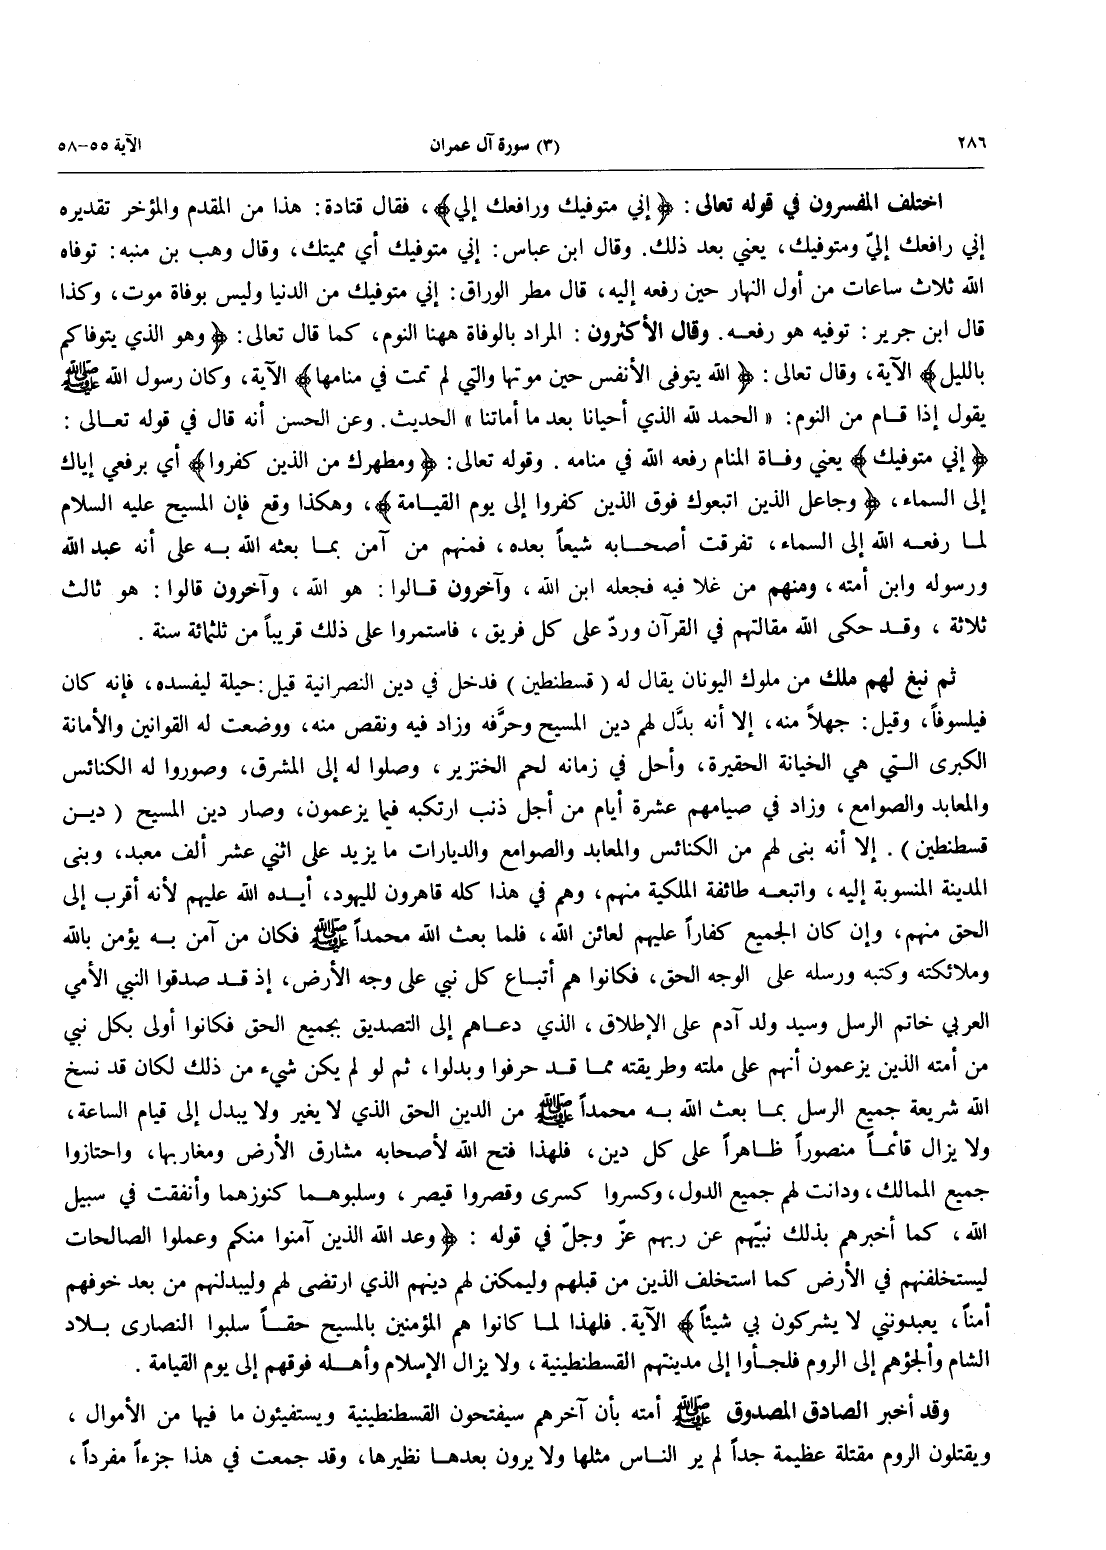 ٢٨٦ (٣) سورة آل عمران الآية ٥٥-٥٨
اختلف المفسرون في قوله تعالى: ﴿إني متوفيك ورافعك إلي﴾، فقال قتادة: هذا من المقدم والمؤخر تقديره
إني رافعك إليّ ومتوفيك، يعني بعد ذلك. وقال ابن عباس: إني متوفيك أي مميتك، وقال وهب بن منبه: توفاه
الله ثلاث ساعات من أول النهار حين رفعه إليه، قال مطر الوراق: إني متوفيك من الدنيا وليس بوفاة موت، وكذا
قال ابن جرير: توفيه هو رفعـه. وقال الأكثرون: المراد بالوفاة ههنا النوم، كما قال تعالى: ﴿وهو الذي يتوفاكم
بالليل﴾ الآية، وقال تعالى: ﴿الله يتوفى الأنفس حين موتها والتي لم تمت في منامها﴾ الآية، وكان رسول الله ﷺ
يقول إذا قـام من النوم: «الحمد لله الذي أحيانا بعد ما أماتنا» الحديث. وعن الحسن أنه قال في قوله تعـالى:
﴿إني متوفيك﴾ يعني وفـاة المنام رفعه الله في منامه. وقوله تعالى: ﴿ومطهرك من الذين كفروا﴾ أي برفعي إياك
إلى السماء، ﴿وجاعل الذين اتبعوك فوق الذين كفروا إلى يوم القيـامة﴾، وهكذا وقع فإن المسيح عليه السلام
لمـا رفعـه الله إلى السماء، تفرقت أصحـابه شيعاً بعده، فمنهم من آمن بمـا بعثه الله بـه على أنه عبد الله
ورسوله وابن أمته، ومنهم من غلا فيه فجعله ابن الله، وآخرون قـالوا: هو الله، وآخرون قالوا: هو ثالث
ثلاثة، وقـد حكى الله مقالتهم في القرآن وردّ على كل فريق، فاستمروا على ذلك قريباً من ثلثمائة سنة.
ثم نبغ لهم ملك من ملوك اليونان يقال له (قسطنطين) فدخل في دين النصرانية قيل: حيلة ليفسده، فإنه كان
فيلسوفاً، وقيل: جهلاً منه، إلا أنه بدَّل لهم دين المسيح وحرَّفه وزاد فيه ونقص منه، ووضعت له القوانين والأمانة
الكبرى التـي هي الخيانة الحقيرة، وأحل في زمانه لحم الخنزير، وصلوا له إلى المشرق، وصوروا له الكنائس
والمعابد والصوامع، وزاد في صيامهم عشرة أيام من أجل ذنب ارتكبه فيما يزعمون، وصار دين المسيح (ديـن
قسطنطين). إلا أنه بنى لهم من الكنائس والمعابد والصوامع والديارات ما يزيد على اثني عشر ألف معبد، وبنى
المدينة المنسوبة إليه، واتبعـه طائفة الملكية منهم، وهم في هذا كله قاهرون لليهود، أيـده الله عليهم لأنه أقرب إلى
الحق منهم، وإن كان الجميع كفاراً عليهم لعائن الله، فلما بعث الله محمداً ﷺ فكان من آمن بـه يؤمن بالله
وملائكته وكتبه ورسله على الوجه الحق، فكانوا هم أتبـاع كل نبي على وجه الأرض، إذ قـد صدقوا النبي الأمي
العربي خاتم الرسل وسيد ولد آدم على الإطلاق، الذي دعـاهم إلى التصديق بجميع الحق فكانوا أولى بكل نبي
من أمته الذين يزعمون أنهم على ملته وطريقته ممـا قـد حرفوا وبدلوا، ثم لو لم يكن شيء من ذلك لكان قد نسخ
الله شريعة جميع الرسل بمـا بعث الله بـه محمداً ﷺ من الدين الحق الذي لا يغير ولا يبدل إلى قيام الساعة،
ولا يزال قائمـاً منصوراً ظـاهراً على كل دين، فلهذا فتح الله لأصحابه مشارق الأرض ومغاربها، واحتازوا
جميع الممالك، ودانت لهم جميع الدول، وكسروا كسرى وقصروا قيصر، وسلبوهـما كنوزهما وأنفقت في سبيل
الله، كما أخبرهم بذلك نبيّهم عن ربهم عزّ وجلّ في قوله: ﴿وعد الله الذين آمنوا منكم وعملوا الصالحات
ليستخلفنهم في الأرض كما استخلف الذين من قبلهم وليمكنن لهم دينهم الذي ارتضى لهم وليبدلنهم من بعد خوفهم
أمناً، يعبدونني لا يشركون بي شيئاً﴾ الآية. فلهذا لمـا كانوا هم المؤمنين بالمسيح حقـاً سلبوا النصارى بـلاد
الشام وألجؤهم إلى الروم فلجـأوا إلى مدينتهم القسطنطينية، ولا يزال الإسلام وأهـله فوقهم إلى يوم القيامة.
وقد أخبر الصادق المصدوق ﷺ أمته بأن آخرهم سيفتحون القسطنطينية ويستفيئون ما فيها من الأموال،
ويقتلون الروم مقتلة عظيمة جداً لم ير النـاس مثلها ولا يرون بعدهـا نظيرها، وقد جمعت في هذا جزءاً مفرداً،